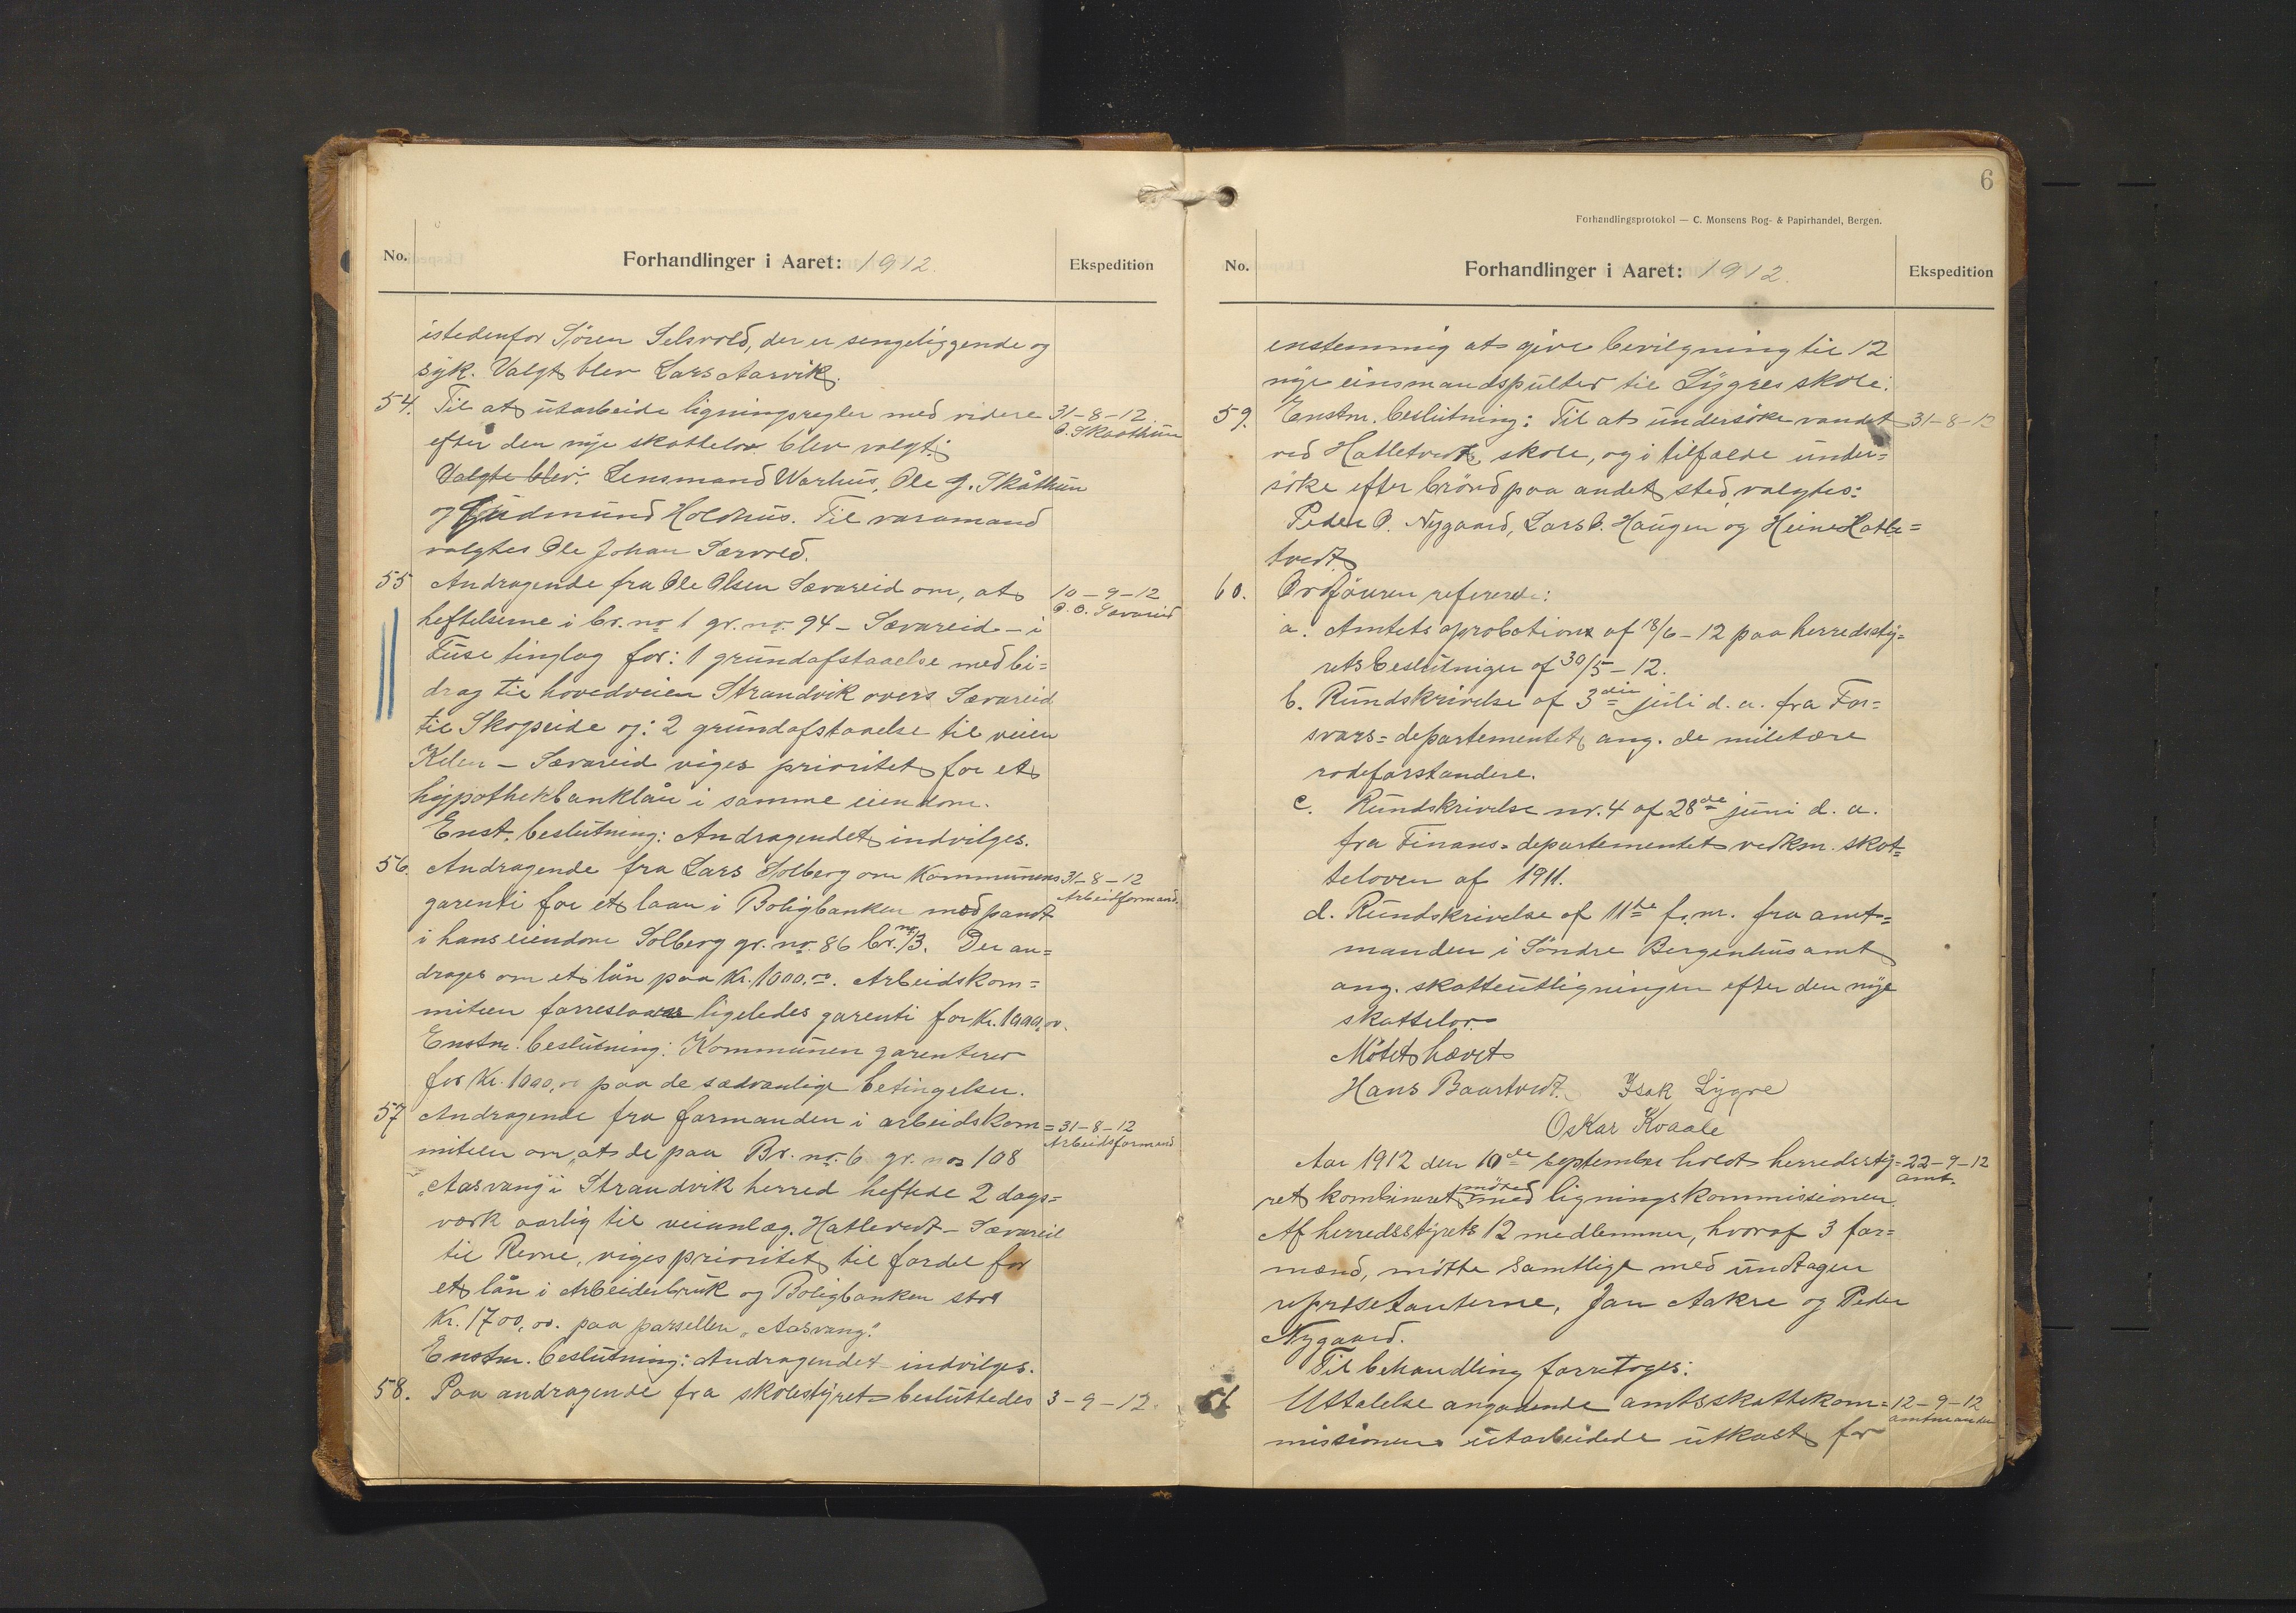 No.
Forhandlinger i Aaret: 1912.
Ekspedition
istedenfor Sören Selsvold, der er sengeliggende og
syk. Valgt blev Lars Aarvik.
54. Til at utarbeide ligningsregler med videre 31-8-12.
efter den nye skattelov blev valgt: O. Skaathun
Valgte blev: Lensmand Warhus, Ole J. Skåthun
og Gudmund Holdhus. Til varamand
valgtes Ole Johan Særvold.
55 Andragende fra Ole Olsen Sævareid om, at 10-9-12
heftelserne i br. no 1 gr. no. 94 – Sævareid – i O. O. Sævareid
Fuse tinglag for: 1 grundafstaaelse med bi=
drag til hovedveien Strandvik overs Sævareid
til Skogseide og: 2 grundafstaaelse til veien
Kilen – Sævareid viges prioritet for et
hypothekbanklån i samme eiendom.
Enst. beslutning: Andragendet indvilges.
56. Andragende fra Lars Solberg om Kommunens 31-8-12
garenti for et laan i Boligbanken med pandt Arbeidsformand.
i hans eiendom Solberg gr. nr. 86 br. nr. 13. Der an=
drages om et lån paa Kr. 1000.00. Arbeidskom=
miteen forreslaar ligeledes garenti for Kr. 1000,00.
Enstm. beslutning: Kommunen garenterer
for Kr. 1000,00 paa de sædvanlige betingelser.
57 Andragende fra formanden i arbeidskom= 31-8-12
miteen om, at de paa Br. nr. 6 gr. nr. 108 Arbeidsformand
„Aasvang" i Strandvik herred heftede 2 dags=
værk aarlig til veianlæg. Hatlevedt – Sævareid
til Revne, viges prioritet til fordel for
et lån i Arbeiderbruk og Boligbanken stor
Kr. 1700,00. paa parsellen „Aasvang".
Enstm. beslutning: Andragendet indvilges.
58. Paa andragende fra skolestyret besluttedes 3-9-12.
6
Forhandlingsprotokol — C. Monsens Bog- & Papirhandel, Bergen.
No.
Forhandlinger i Aaret: 1912.
Ekspedition
enstemmig at give bevilgning til 12
nye einsmandspulter til Lygres skole.
59. Enstm. beslutning: Til at undersöke vandet 31-8-12
ved Hatletvedt skole, og i tilfælde under=
söke efter brönd paa andet sted valgtes:
Peder O. Nygaard, Lars O. Haugen og Heine Hatle=
tvedt.
60. Ordföreren refererte:
a. Amtets aprobation af 18/6-12 paa herredssty=
rets beslutninger af 30/5-12.
b. Rundskrivelse af 3die juli d. a. fra For=
svars=departementet ang. de militære
rodeforstandere.
c. Rundskrivelse nr. 4 af 28de juni d. a.
fra Finans=departementet vedkm. skat=
teloven af 1911.
d. Rundskrivelse af 11te f. m. fra amt=
manden i Söndre Bergenhus amt
ang. skatteutligningen efter den nye
skattelov.
Mötet hævet
Hans Baartvedt. Isak Lygre
Oskar Kvaale
Aar 1912 den 10de september holdt herredssty= 22-9-12
ret kombineret möte med ligningskommissionen. amt.
Af herredsstyrets 12 medlemmer, hvoraf 3 for=
mænd, mötte samtlige med undtagen
represetanterne, Jan Aakre og Peder
Nygaard.
Til behandling forretoges:
61 Uttalelse angaaende amtsskattekom= 12-9-12
missionens utarbeidede utkast for amtmanden